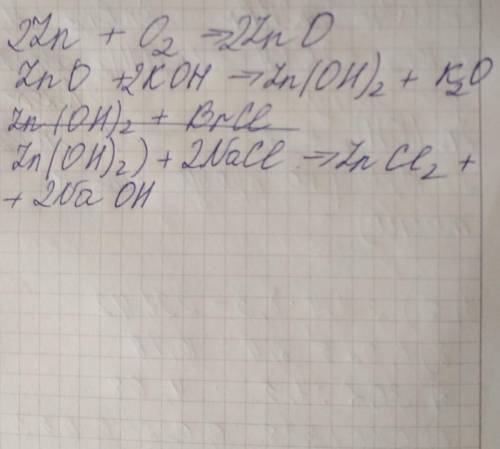 2Zn + O₂ ⇒ 2ZnO
ZnO + 2KOH ⇒ Zn(OH)₂ + K₂O
Zn(OH)₂ + BrCl
Zn(OH)₂) + 2NaCl ⇒ ZnCl₂ +
+ 2NaOH